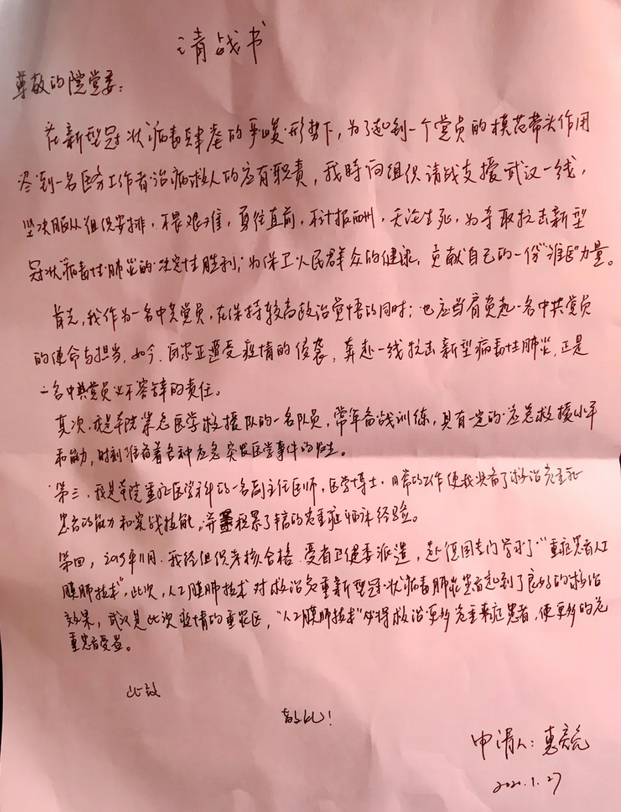 请战书
尊敬的院党委：
在新型冠状病毒肆虐的严峻形势下，为了起到一个党员的模范带头作用
尽到一名医务工作者治病救人的应有职责，我时向组织请战支援武汉一线，
坚决服从组织安排，不畏艰难，勇往直前，不计报酬，无论生死，为夺取抗击新型
冠状病毒性肺炎的决定性胜利，为保卫人民群众的健康，贡献自己的一份力量。
首先，我作为一名中共党员，在保持较高政治觉悟的同时；也应当肩负起一名中共党员
的使命与担当，如今，国家正遭受疫情的侵袭，奔赴一线抗击新型病毒性肺炎，正是
一名中共党员义不容辞的责任。
其次，我是我院紧急医学救援队的一名队员，常年备战训练，具有一定的应急救援水平
和能力，时刻准备着各种应急突发医学事件的发生。
第三，我是我院重症医学科的一名副主任医师，医学博士，日常的工作使我具有了救治危重症
患者的能力和实战技能，并积累了丰富的危重症临床经验。
第四，2019年11月，我经组织考核合格，受省卫健委派遣，赴德国专门学习了“重症患者人工
膜肺技术”，此次，人工膜肺技术对救治危重新型冠状病毒肺炎患者起到了良好的救治
效果，武汉是此次疫情的重灾区，“人工膜肺技术”必将救治更多危重症患者，使更多的危
重患者受益。
此致
敬礼！
申请人：
2020.1.27